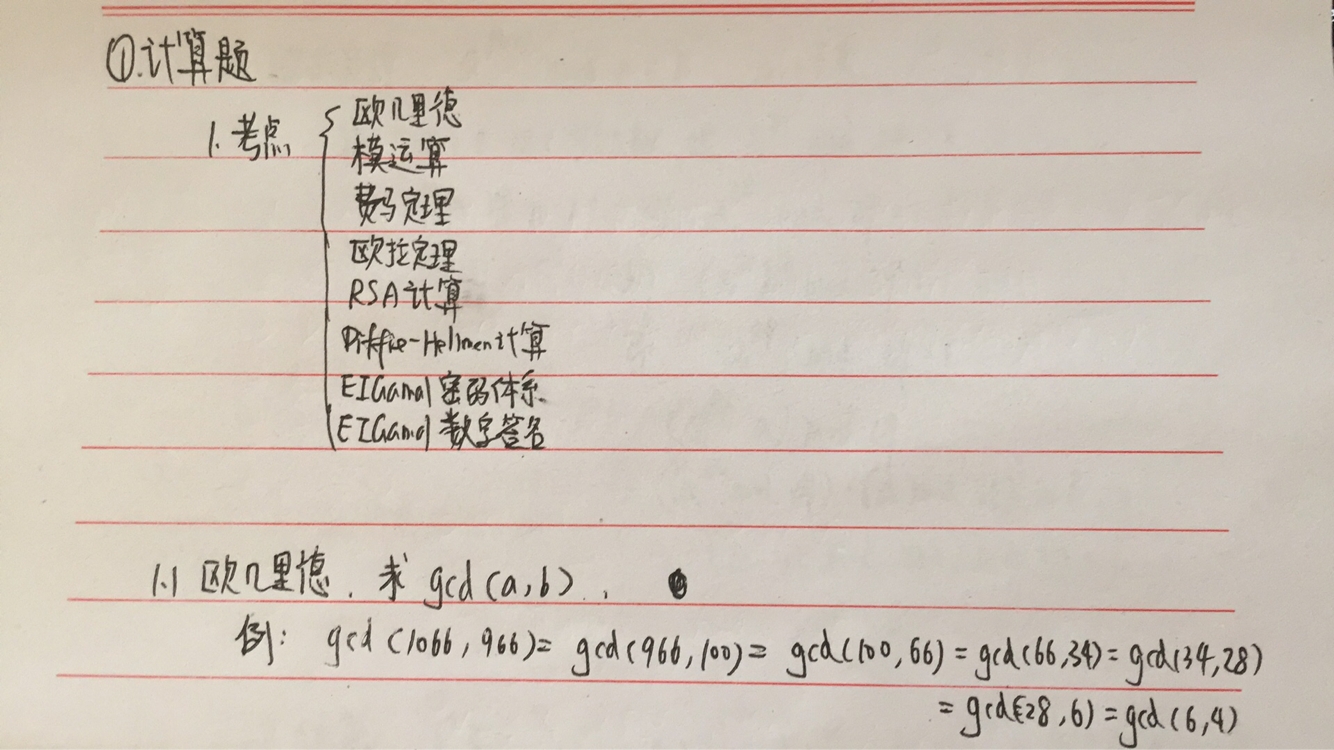 ①.计算题
1.考点
欧几里德
模运算
费马定理
欧拉定理
RSA计算
Diffie-Hellmen计算
ElGamal 密码体系
ElGamal 数字签名
1.1 欧几里德. 求 gcd(a,b).
例: gcd(1066,966)= gcd(966,100)= gcd(100,66)=gcd(66,34)=gcd(34,28)
=gcd(28,6)=gcd(6,4)